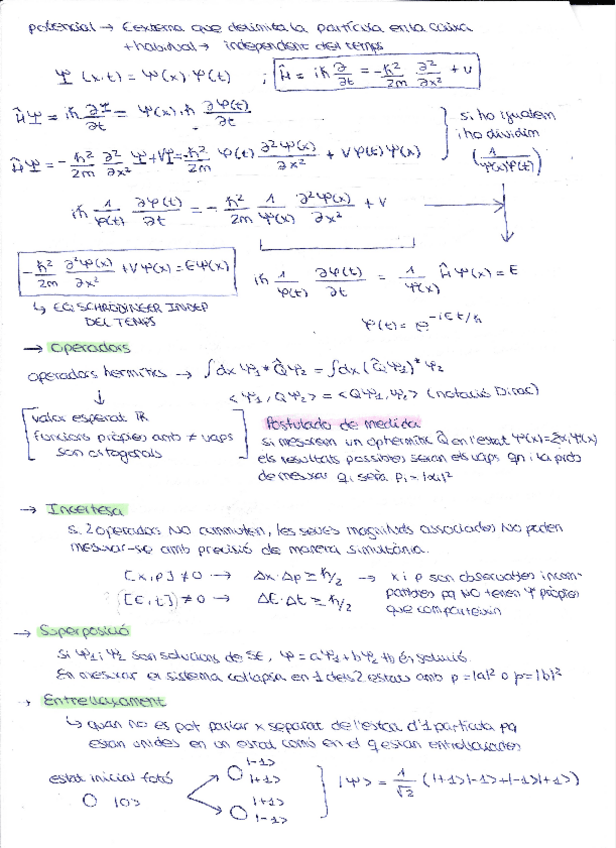 potencial → Eexterna que delimita la partícula en la caixa
+habitual → independent del temps
Ψ(x,t) = Ψ(x) φ(t) ; Ĥ = iℏ ∂/∂t = -ℏ²/2m ∂²/∂x² + V
ĤΨ = iℏ ∂Ψ/∂t = Ψ(x) iℏ ∂φ(t)/∂t
si ho igualem
i ho dividim
(1/Ψ(x)φ(t))
ĤΨ = -ℏ²/2m ∂²/∂x² Ψ + VΨ = -ℏ²/2m φ(t) ∂²Ψ(x)/∂x² + Vφ(t)Ψ(x)
iℏ 1/φ(t) ∂φ(t)/∂t = -ℏ²/2m 1/Ψ(x) ∂²Ψ(x)/∂x² + V
-ℏ²/2m ∂²Ψ(x)/∂x² + VΨ(x) = EΨ(x)
iℏ 1/φ(t) ∂φ(t)/∂t = 1/Ψ(x) ĤΨ(x) = E
↳ EQ SCHRÖDINGER INDEP
DEL TEMPS
φ(t) = e^-iEt/ℏ
→ Operadors
operadors hermítics → ∫dx Ψ₁* Q̂Ψ₂ = ∫dx (Q̂Ψ₁)* Ψ₂
<Ψ₁, QΨ₂> = <QΨ₁, Ψ₂> (notació Dirac)
valor esperat ℝ
funcions pròpies amb ≠ vaps
son ortogonals
Postulado de medida
si mesurem un op hermític Q̂ en l'estat Ψ(x)=
els resultats possibles seran els vaps qn i la prob
de mesurar qi serà pi = |αi|²
→ Incertesa
si 2 operadors NO commuten, les seves magnituds associades NO poden
mesurar-se amb precisió de manera simultània.
[x,p] ≠ 0 → Δx·Δp ≥ ℏ/2 → x i p son observables incom-
patibles pq NO tenen Ψ pròpies
[E,t] ≠ 0 → ΔE·Δt ≥ ℏ/2
que comparteixin
→ Superposició
Si Ψ₁ i Ψ₂ son solucions de SE, Ψ = aΨ₁ + bΨ₂ tb én solució.
En mesurar el sistema collapsa en 1 dels 2 estats amb p = |a|² o p = |b|²
→ Entrellaçament
↳ quan no es pot parlar x separat de l'estat d'1 partícula pq
estan unides en un estat comú en el q estan entrellaçades
estat inicial fotó
|0>
|-1>
|+1>
|+1>
|-1>
|Ψ> = 1/√2 (|+1>|-1> + |-1>|+1>)